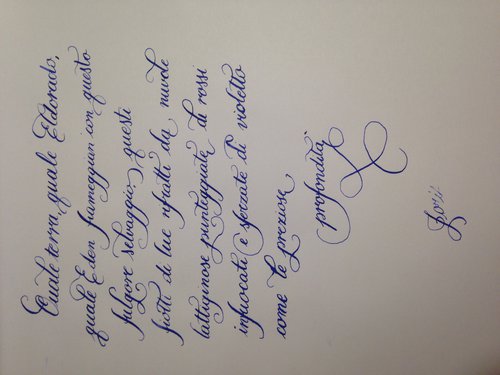 Quale terra, quale Eldorado,
quale Eden fiammeggiari con questo
fulgore selvaggio, questi
fiotti di luce rifratti da nuvole
lattiginose punteggiate di rossi
infuocati e sferzate di violetto
come le preziose
profondità